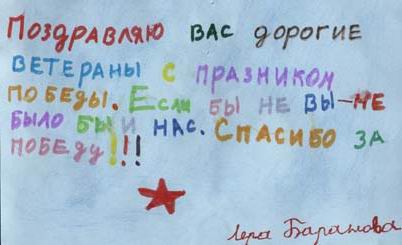 Поздравляю вас дорогие
ветераны с празником
победы. Если бы не вы-не
было бы и нас. Спасибо за
победу!!!
Лера Баранова